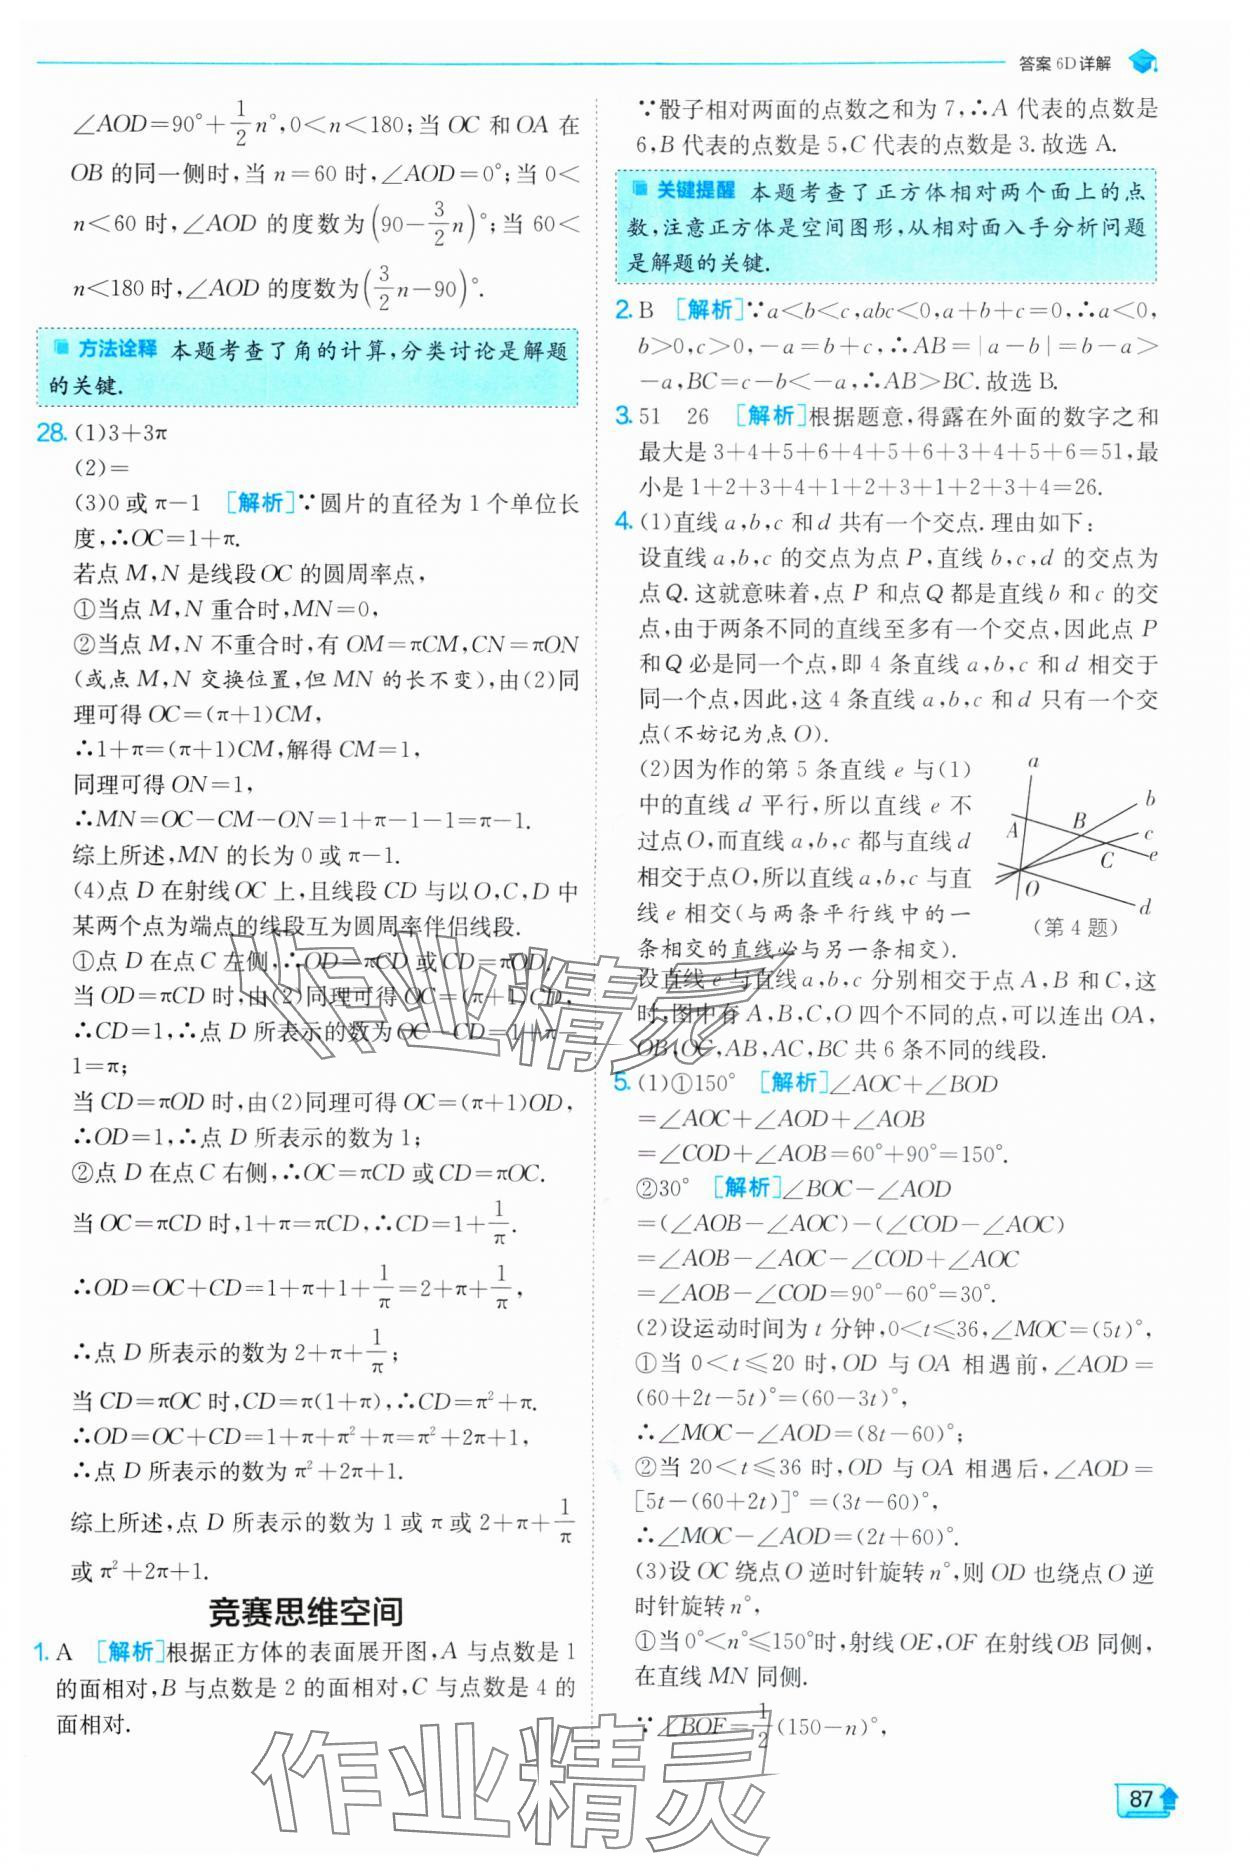 答案 6D详解
∠AOD=90°+1/2n°,0<n<180;当 OC 和 OA 在
OB 的同一侧时,当 n=60 时,∠AOD=0°;当 0<
n<60 时,∠AOD 的度数为(90-3/2n)°;当 60<
n<180 时,∠AOD 的度数为(3/2n-90)°.
方法诠释 本题考查了角的计算,分类讨论是解题
的关键.
28. (1)3+3π
(2)=
(3)0 或 π-1 [解析]∵圆片的直径为 1 个单位长
度,∴OC=1+π.
若点 M,N 是线段 OC 的圆周率点,
①当点 M,N 重合时,MN=0,
②当点 M,N 不重合时,有 OM=πCM,CN=πON
(或点 M,N 交换位置,但 MN 的长不变),由(2)同
理可得 OC=(π+1)CM,
∴1+π=(π+1)CM,解得 CM=1,
同理可得 ON=1,
∴MN=OC-CM-ON=1+π-1-1=π-1.
综上所述,MN 的长为 0 或 π-1.
(4)点 D 在射线 OC 上,且线段 CD 与以 O,C,D 中
某两个点为端点的线段互为圆周率伴侣线段.
①点 D 在点 C 左侧,∴OD=πCD 或 CD=πOD.
当 OD=πCD 时,由(2)同理可得 OC=(π+1)CD,
∴CD=1,∴点 D 所表示的数为 OC-CD=1+π-
1=π;
当 CD=πOD 时,由(2)同理可得 OC=(π+1)OD,
∴OD=1,∴点 D 所表示的数为 1;
②点 D 在点 C 右侧,∴OC=πCD 或 CD=πOC.
当 OC=πCD 时,1+π=πCD,∴CD=1+1/π.
∴OD=OC+CD=1+π+1+1/π=2+π+1/π,
∴点 D 所表示的数为 2+π+1/π;
当 CD=πOC 时,CD=π(1+π),∴CD=π²+π.
∴OD=OC+CD=1+π+π²+π=π²+2π+1,
∴点 D 所表示的数为 π²+2π+1.
综上所述,点 D 所表示的数为 1 或 π 或 2+π+1/π
或 π²+2π+1.
竞赛思维空间
1. A [解析]根据正方体的表面展开图,A 与点数是 1
的面相对,B 与点数是 2 的面相对,C 与点数是 4 的
面相对.
∵骰子相对两面的点数之和为 7,∴A 代表的点数是
6,B 代表的点数是 5,C 代表的点数是 3.故选 A.
关键提醒 本题考查了正方体相对两个面上的点
数,注意正方体是空间图形,从相对面入手分析问题
是解题的关键.
2. B [解析]∵a<b<c,abc<0,a+b+c=0,∴a<0,
b>0,c>0,-a=b+c,∴AB=|a-b|=b-a>
-a,BC=c-b<-a,∴AB>BC.故选 B.
3. 51 26 [解析]根据题意,得露在外面的数字之和
最大是 3+4+5+6+4+5+6+3+4+5+6=51,最
小是 1+2+3+4+1+2+3+1+2+3+4=26.
4. (1)直线 a,b,c 和 d 共有一个交点.理由如下:
设直线 a,b,c 的交点为点 P,直线 b,c,d 的交点为
点 Q.这就意味着,点 P 和点 Q 都是直线 b 和 c 的交
点,由于两条不同的直线至多有一个交点,因此点 P
和 Q 必是同一个点,即 4 条直线 a,b,c 和 d 相交于
同一个点,因此,这 4 条直线 a,b,c 和 d 只有一个交
点(不妨记为点 O).
(2)因为作的第 5 条直线 e 与(1)
中的直线 d 平行,所以直线 e 不
过点 O,而直线 a,b,c 都与直线 d
相交于点 O,所以直线 a,b,c 与直
线 e 相交(与两条平行线中的一
条相交的直线必与另一条相交).
a
b
A
B
c
C
e
O
d
(第 4 题)
设直线 e 与直线 a,b,c 分别相交于点 A,B 和 C,这
时,图中有 A,B,C,O 四个不同的点,可以连出 OA,
OB,OC,AB,AC,BC 共 6 条不同的线段.
5. (1)①150° [解析]∠AOC+∠BOD
=∠AOC+∠AOD+∠AOB
=∠COD+∠AOB=60°+90°=150°.
②30° [解析]∠BOC-∠AOD
=(∠AOB-∠AOC)-(∠COD-∠AOC)
=∠AOB-∠AOC-∠COD+∠AOC
=∠AOB-∠COD=90°-60°=30°.
(2)设运动时间为 t 分钟,0<t≤36,∠MOC=(5t)°,
①当 0<t≤20 时,OD 与 OA 相遇前,∠AOD=
(60+2t-5t)°=(60-3t)°,
∴∠MOC-∠AOD=(8t-60)°;
②当 20<t≤36 时,OD 与 OA 相遇后,∠AOD=
[5t-(60+2t)]°=(3t-60)°,
∴∠MOC-∠AOD=(2t+60)°.
(3)设 OC 绕点 O 逆时针旋转 n°,则 OD 也绕点 O 逆
时针旋转 n°,
①当 0°<n°≤150°时,射线 OE,OF 在射线 OB 同侧,
在直线 MN 同侧.
∵∠BOF=1/2(150-n)°,
作业精灵
作业精灵
87